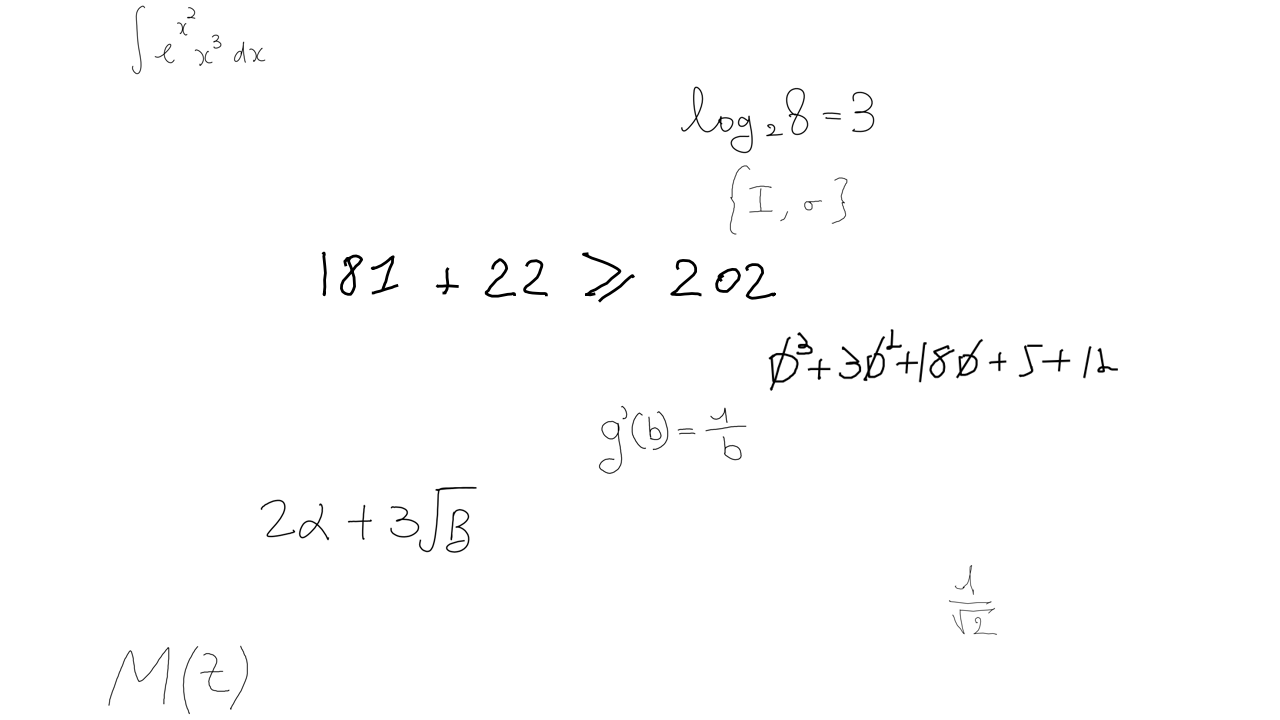 ∫ e^{x^2} x^3 dx
log_2 8 = 3
{I, σ}
181 + 22 ⩾ 202
∅^3 + 3∅^2 + 18∅ + 5 + 12
g'(b) = 1/b
2α + 3√B
1/√2
M(z)